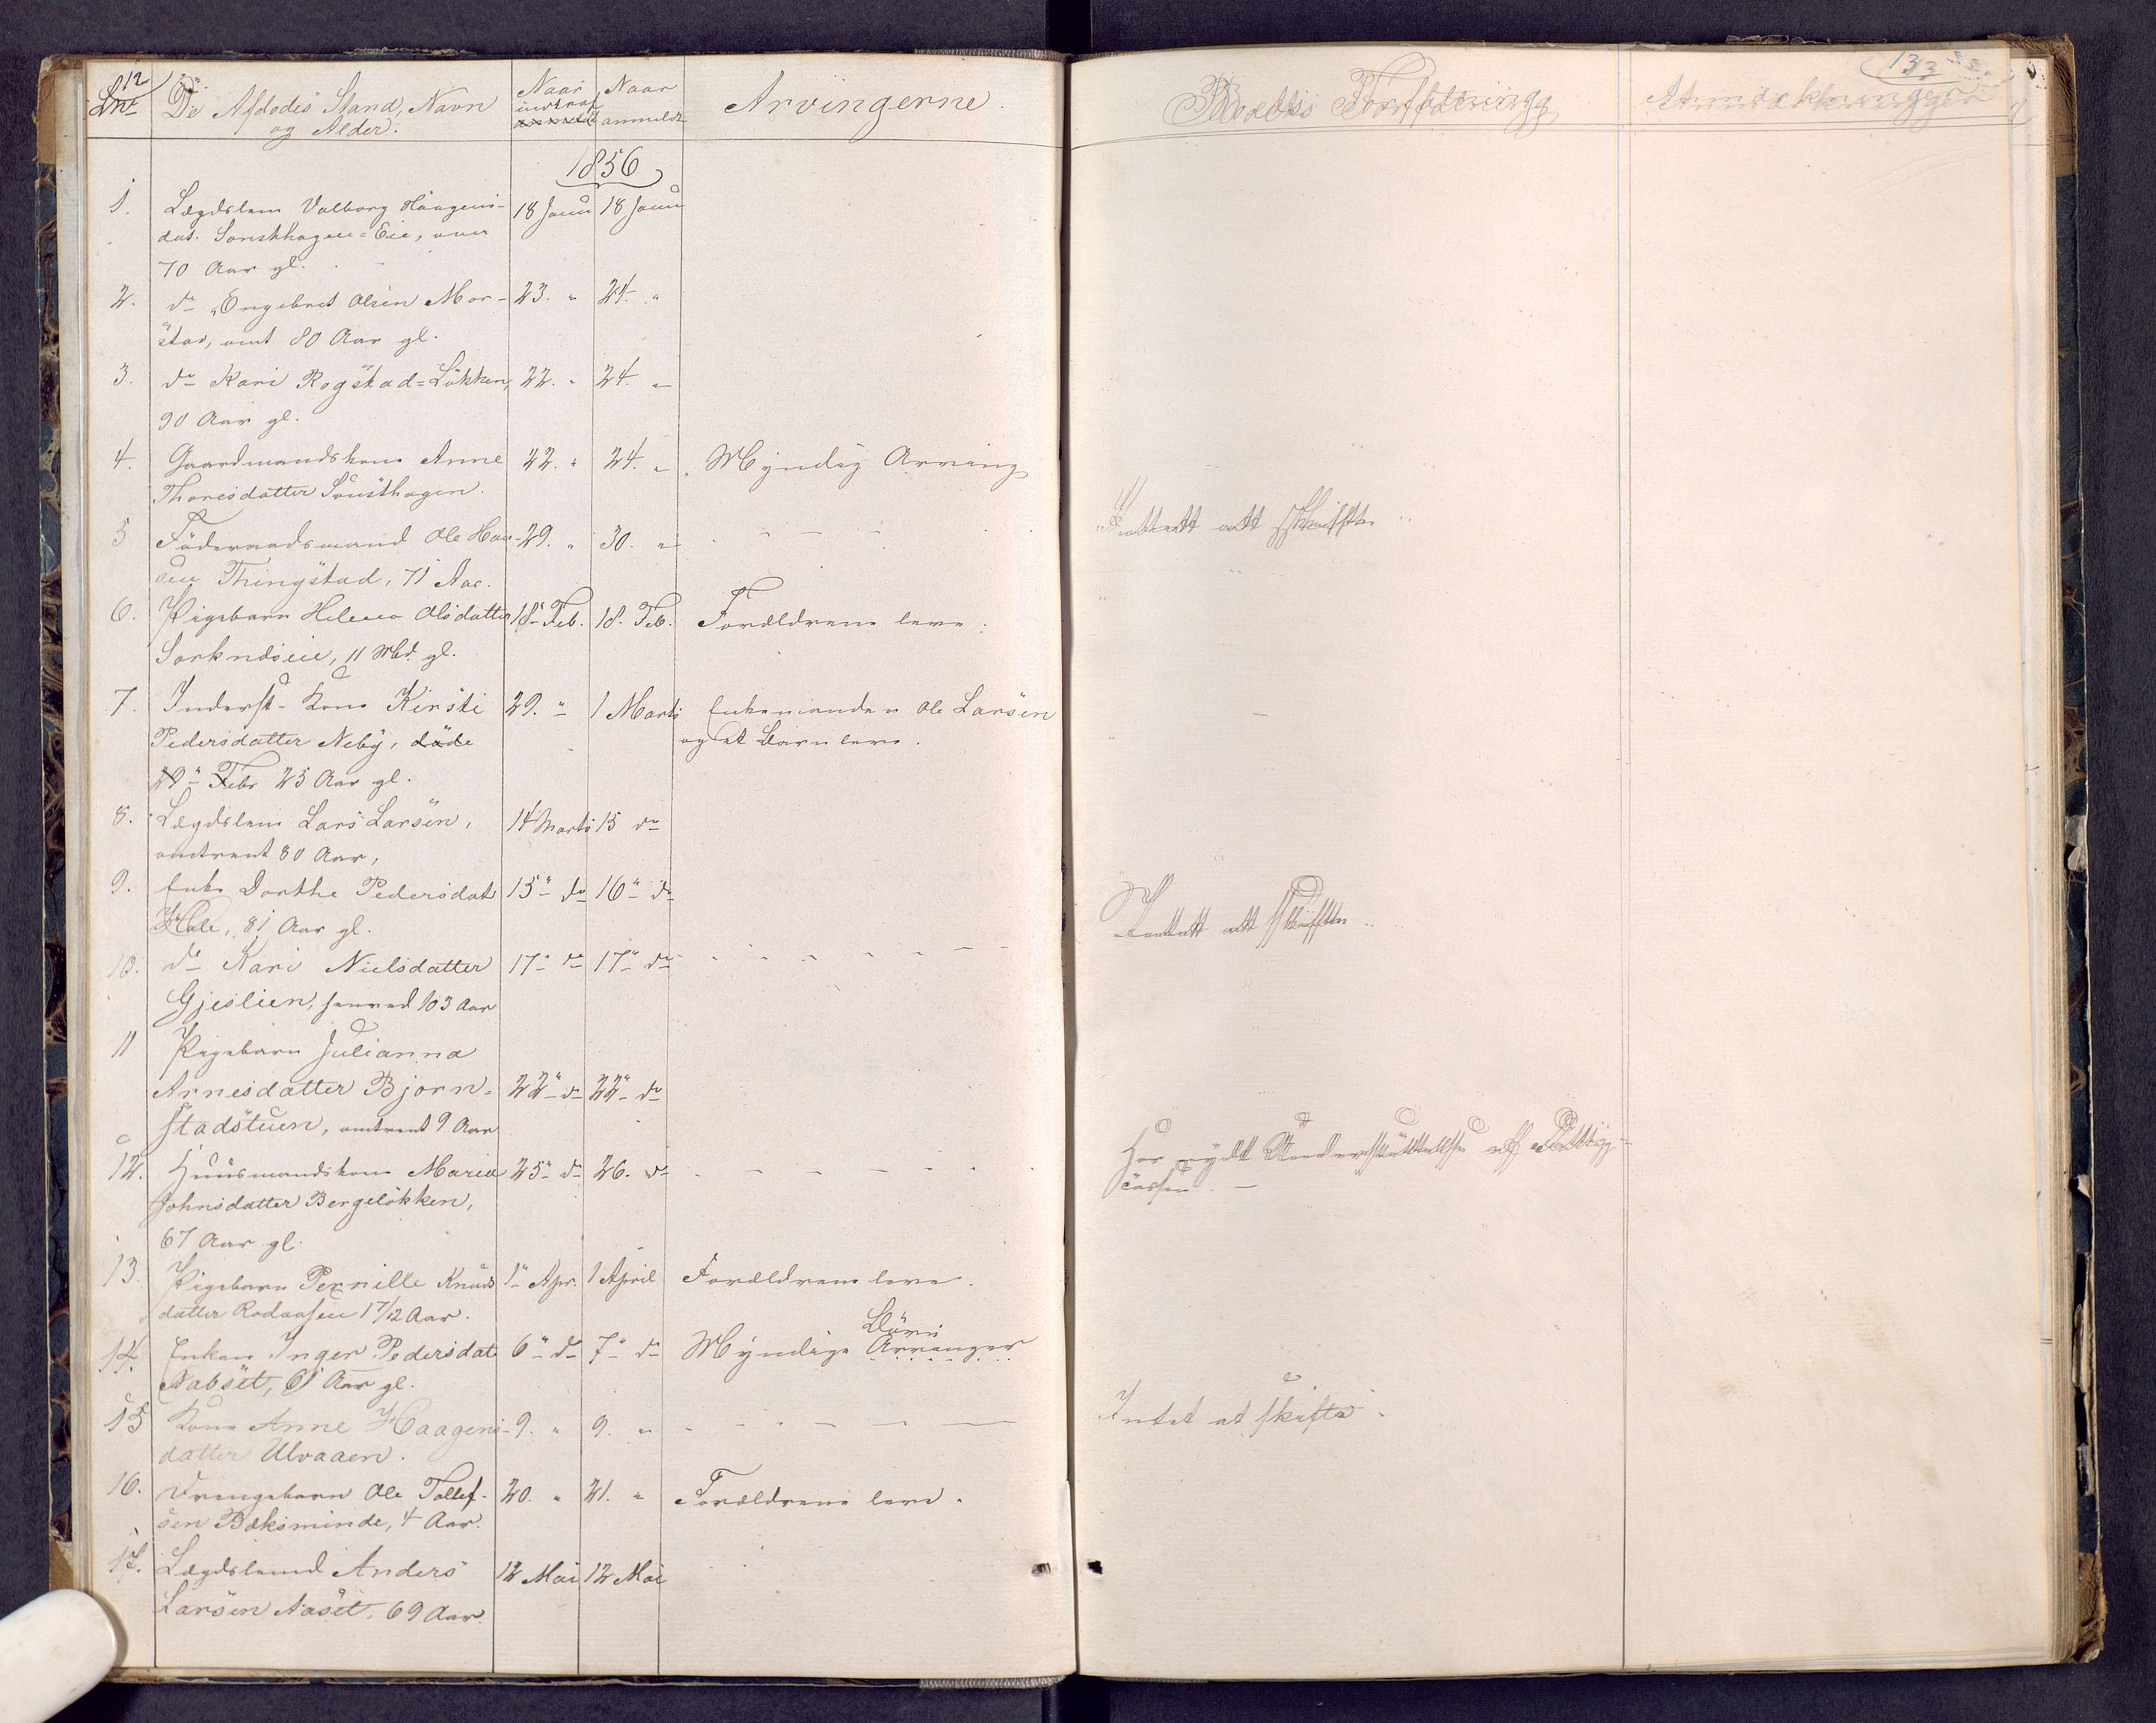 12
Lnr
De Afdødes Stand, Navn
og Alder.
Naar
indtraf
Naar
anmeldt
Arvingerne.
1856
1. Lægdslem Valborg Haagens- 18 Janu 18 Janu
dat. Sousthagen=Eie, over
70 Aar gl.
2. do Engebret Olsen Mor- 23. " 24. "
stad, omt 80 Aar gl.
3. do Kari Rogstad=Løkken, 22. " 24. "
90 Aar gl.
4. Gaardmandskone Anne 22. " 24. " Myndig Arving
Thoresdatter Sousthagen.
5 Føderaadsmand Ole Han- 29. " 30. " - - - -
sen Thingstad, 71 Aar.
6. Pigebarn Helene Olsdatter 18" Feb. 18. Feb. Forældrene leve.
Sorkndseie, 11 Md. gl.
7. Inderst-Kone Kirsti 29. " 1 Marts Enkemanden Ole Larsen
Pedersdatter Neby, døde og et Barn leve.
29" Febr 25 Aar gl.
8. Lægdslem Lars Larsen, 14 Marts 15 do
omtrent 80 Aar,
9. Enke Dorthe Pedersdat 15" do 16" do
Hole, 81 Aar gl.
10. do Kari Nielsdatter 17" do 17" do - - - - - -
Gjeslien, henved 103 Aar
11 Pigebarn Julianna
Arnesdatter Bjørn- 22" do 22" do
stadstuen, omtrent 9 Aar
12. Huusmandskone Maria 25" do 26. do - - - - - -
Johnsdatter Bergeløkken,
67 Aar gl.
13. Pigebarn Pernille Knuds 1" Apr. 1 April Forældrene leve.
datter Rodaasen 1 7/12 Aar.
Børn
14. Enken Inger Pedersdat 6" do 7" do Myndige Arvinger
Nabset, 61 Aar gl.
15 Kone Anne Haagens- 9. " 9. " - - - - - -
datter Ulvaaen.
16. Drengebarn Ole Tollef- 20. " 21. " Forældrene leve.
sen Bæksminde, 4 Aar.
17. Lægdslemd Anders 12 Mai 12 Mai
Larsen Aaset, 69 Aar.
133
Boets Forfatning
Anmærkninger
Intet at skifte.
Intet at skifte.
Har nydt Understøttelse af Fattig-
cassen. -
Intet at skifte.